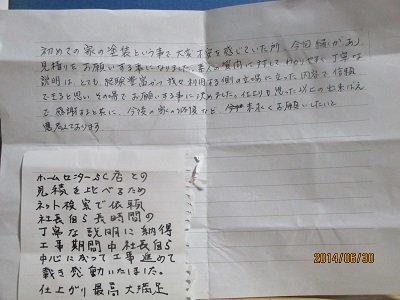 初めての家の塗装という事で大変不安を感じていた所、今回縁があり、
見積りをお願いする事になりました。素人の質問に対してわかりやすく丁寧な
説明は、とても経験豊富かつ 利用する側の立場に立った内容で信頼
できると思い その場でお願いする事に決めました。仕上りも思った以上の出来ばえ
で感謝すると共に、今後の家の補修など 末永くお願いしたいと
思っております
ホームセンター 店との
見積を比べるため
ネット検索で依頼
社長自ら長時間の
丁寧な説明に納得
工事期間中社長自ら
中心に成って工事進めて
戴き感動いたしました。
仕上がり最高大満足
2014/06/30